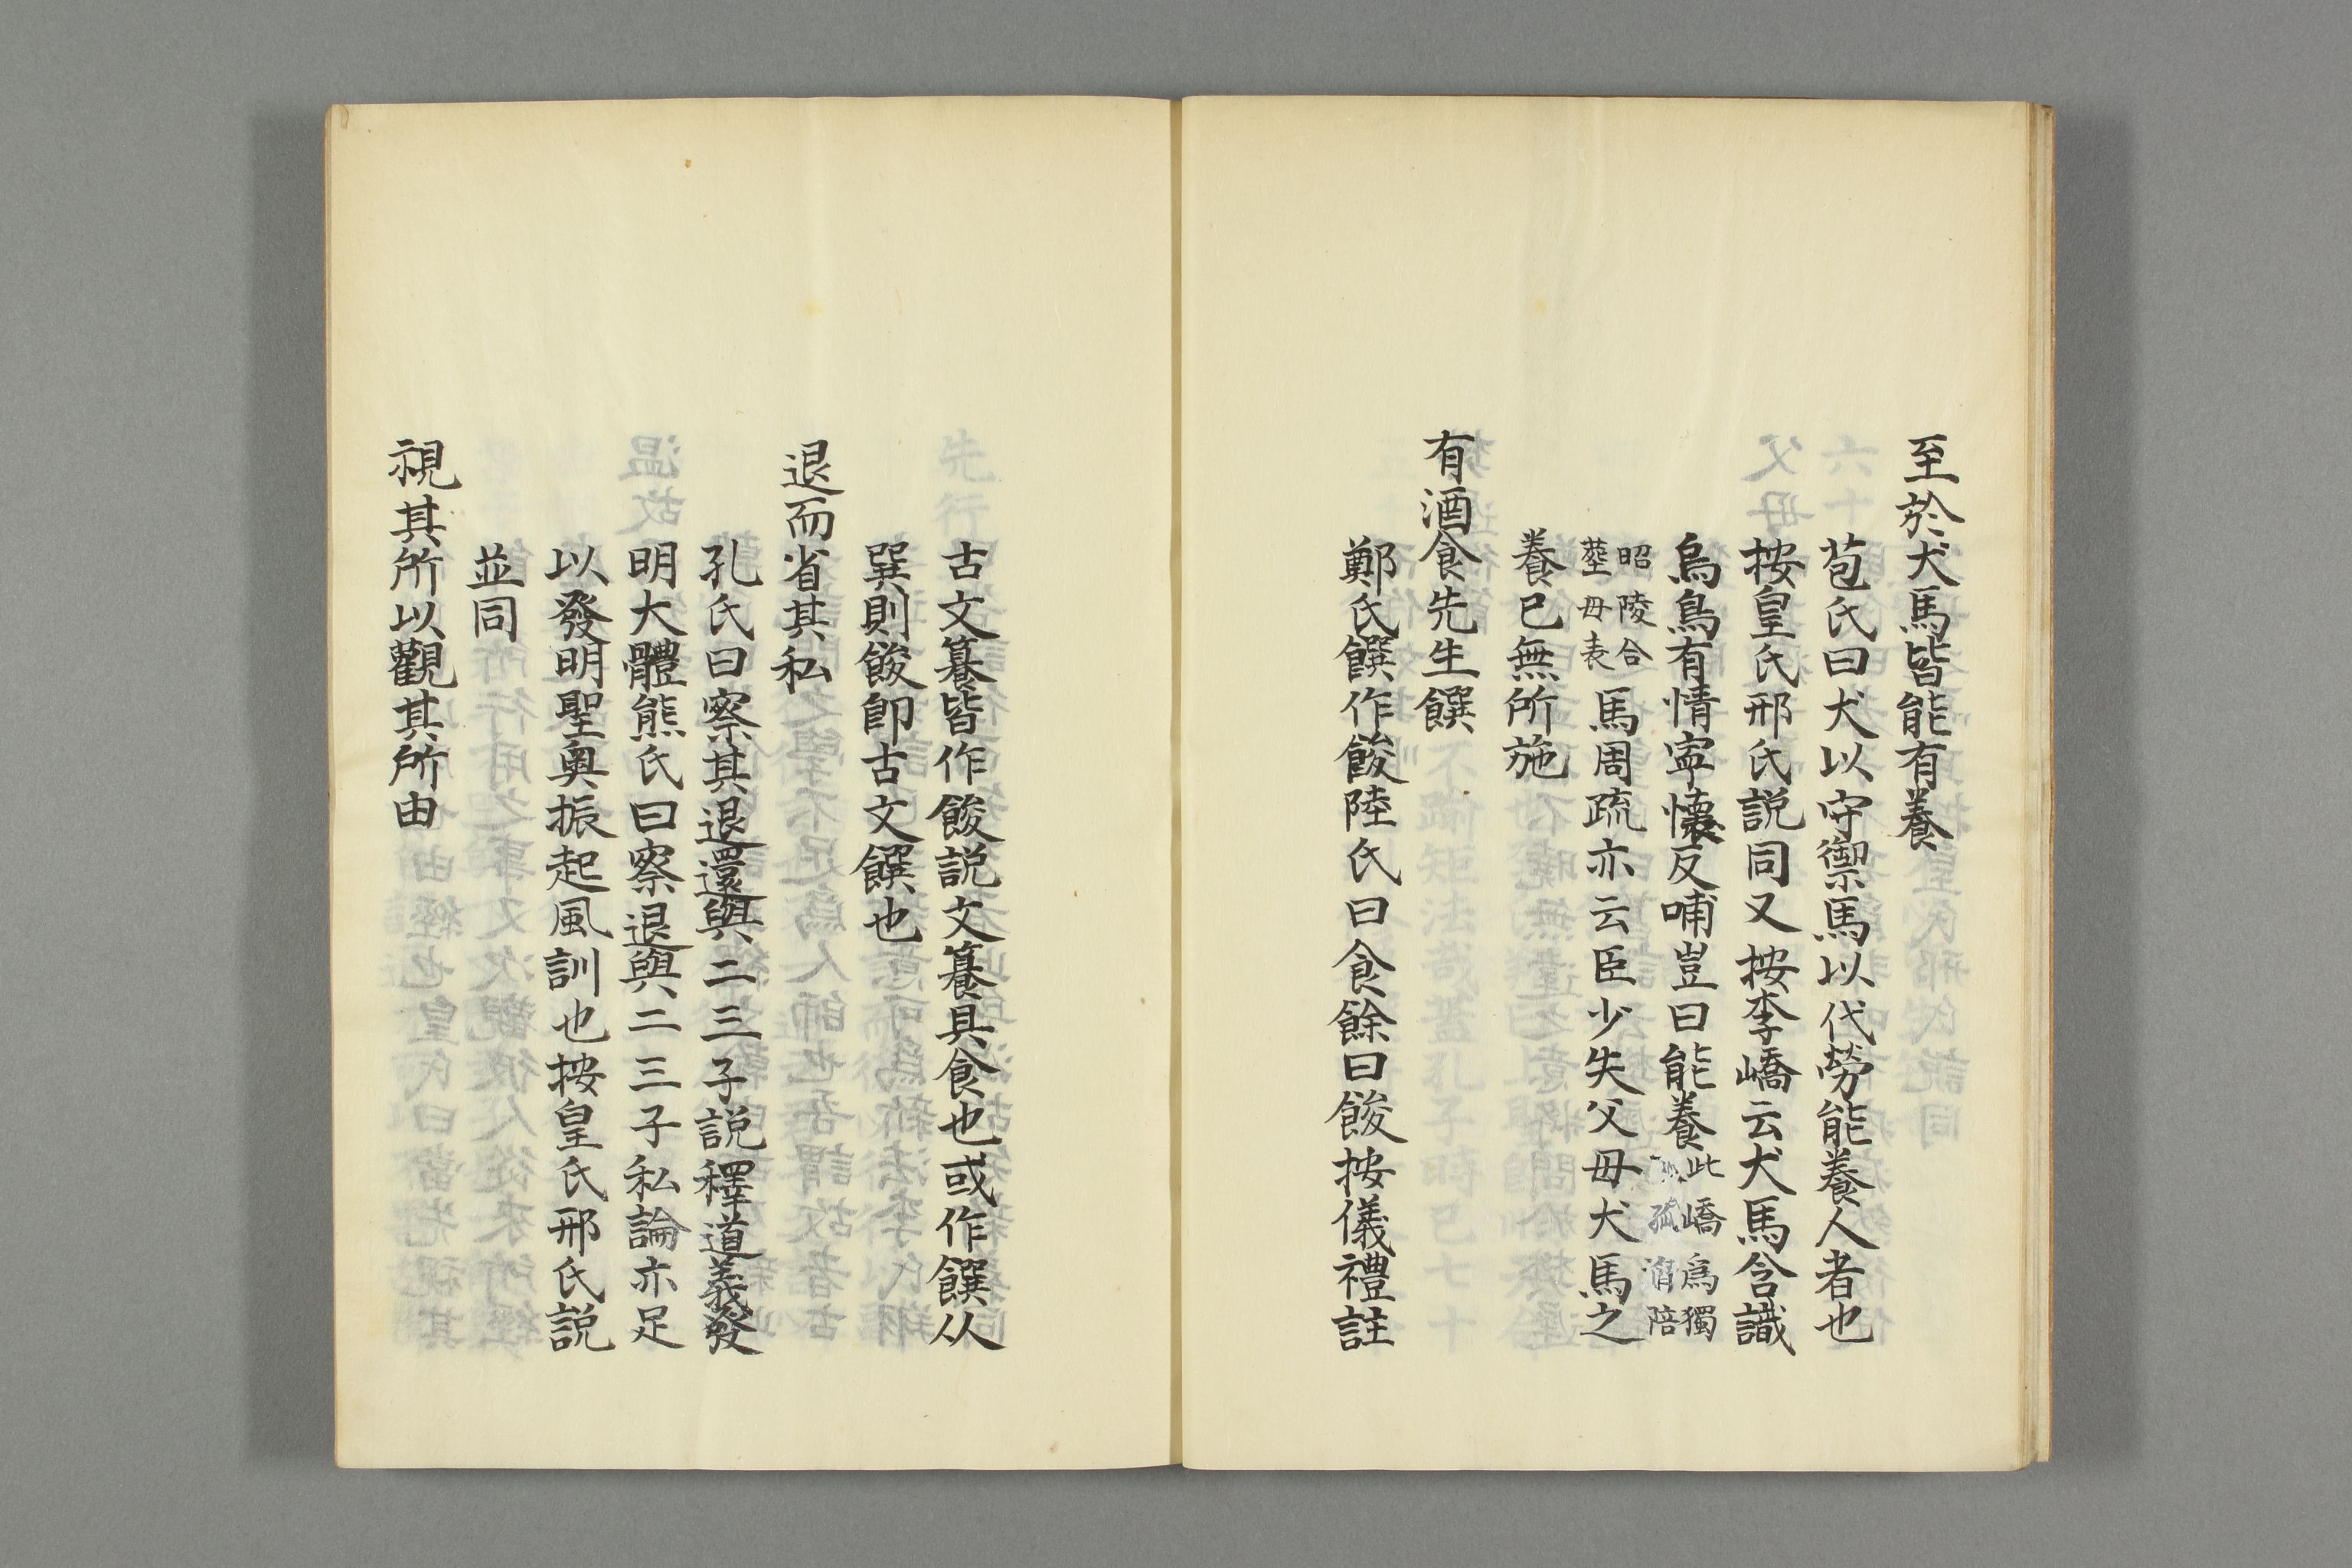 至於犬馬皆能有養
苞氏曰犬以守禦馬以代勞能養人者也
按皇氏邢氏説同又按李嶠云犬馬含識
烏鳥有情寧懷反哺豈曰能養此嶠為獨孤湑陪
昭陵合塟母表馬周疏亦云臣少失父母犬馬之
養已無所施
有酒食先生饌
鄭氏饌作餕陸氏曰食餘曰餕按儀禮註
古文籑皆作餕説文籑具食也或作饌从
巽則餕卽古文饌也
退而省其私
孔氏曰察其退還與二三子説釋道義發
明大體熊氏曰察退與二三子私論亦足
以發明聖奥振起風訓也按皇氏邢氏説
並同
視其所以觀其所由